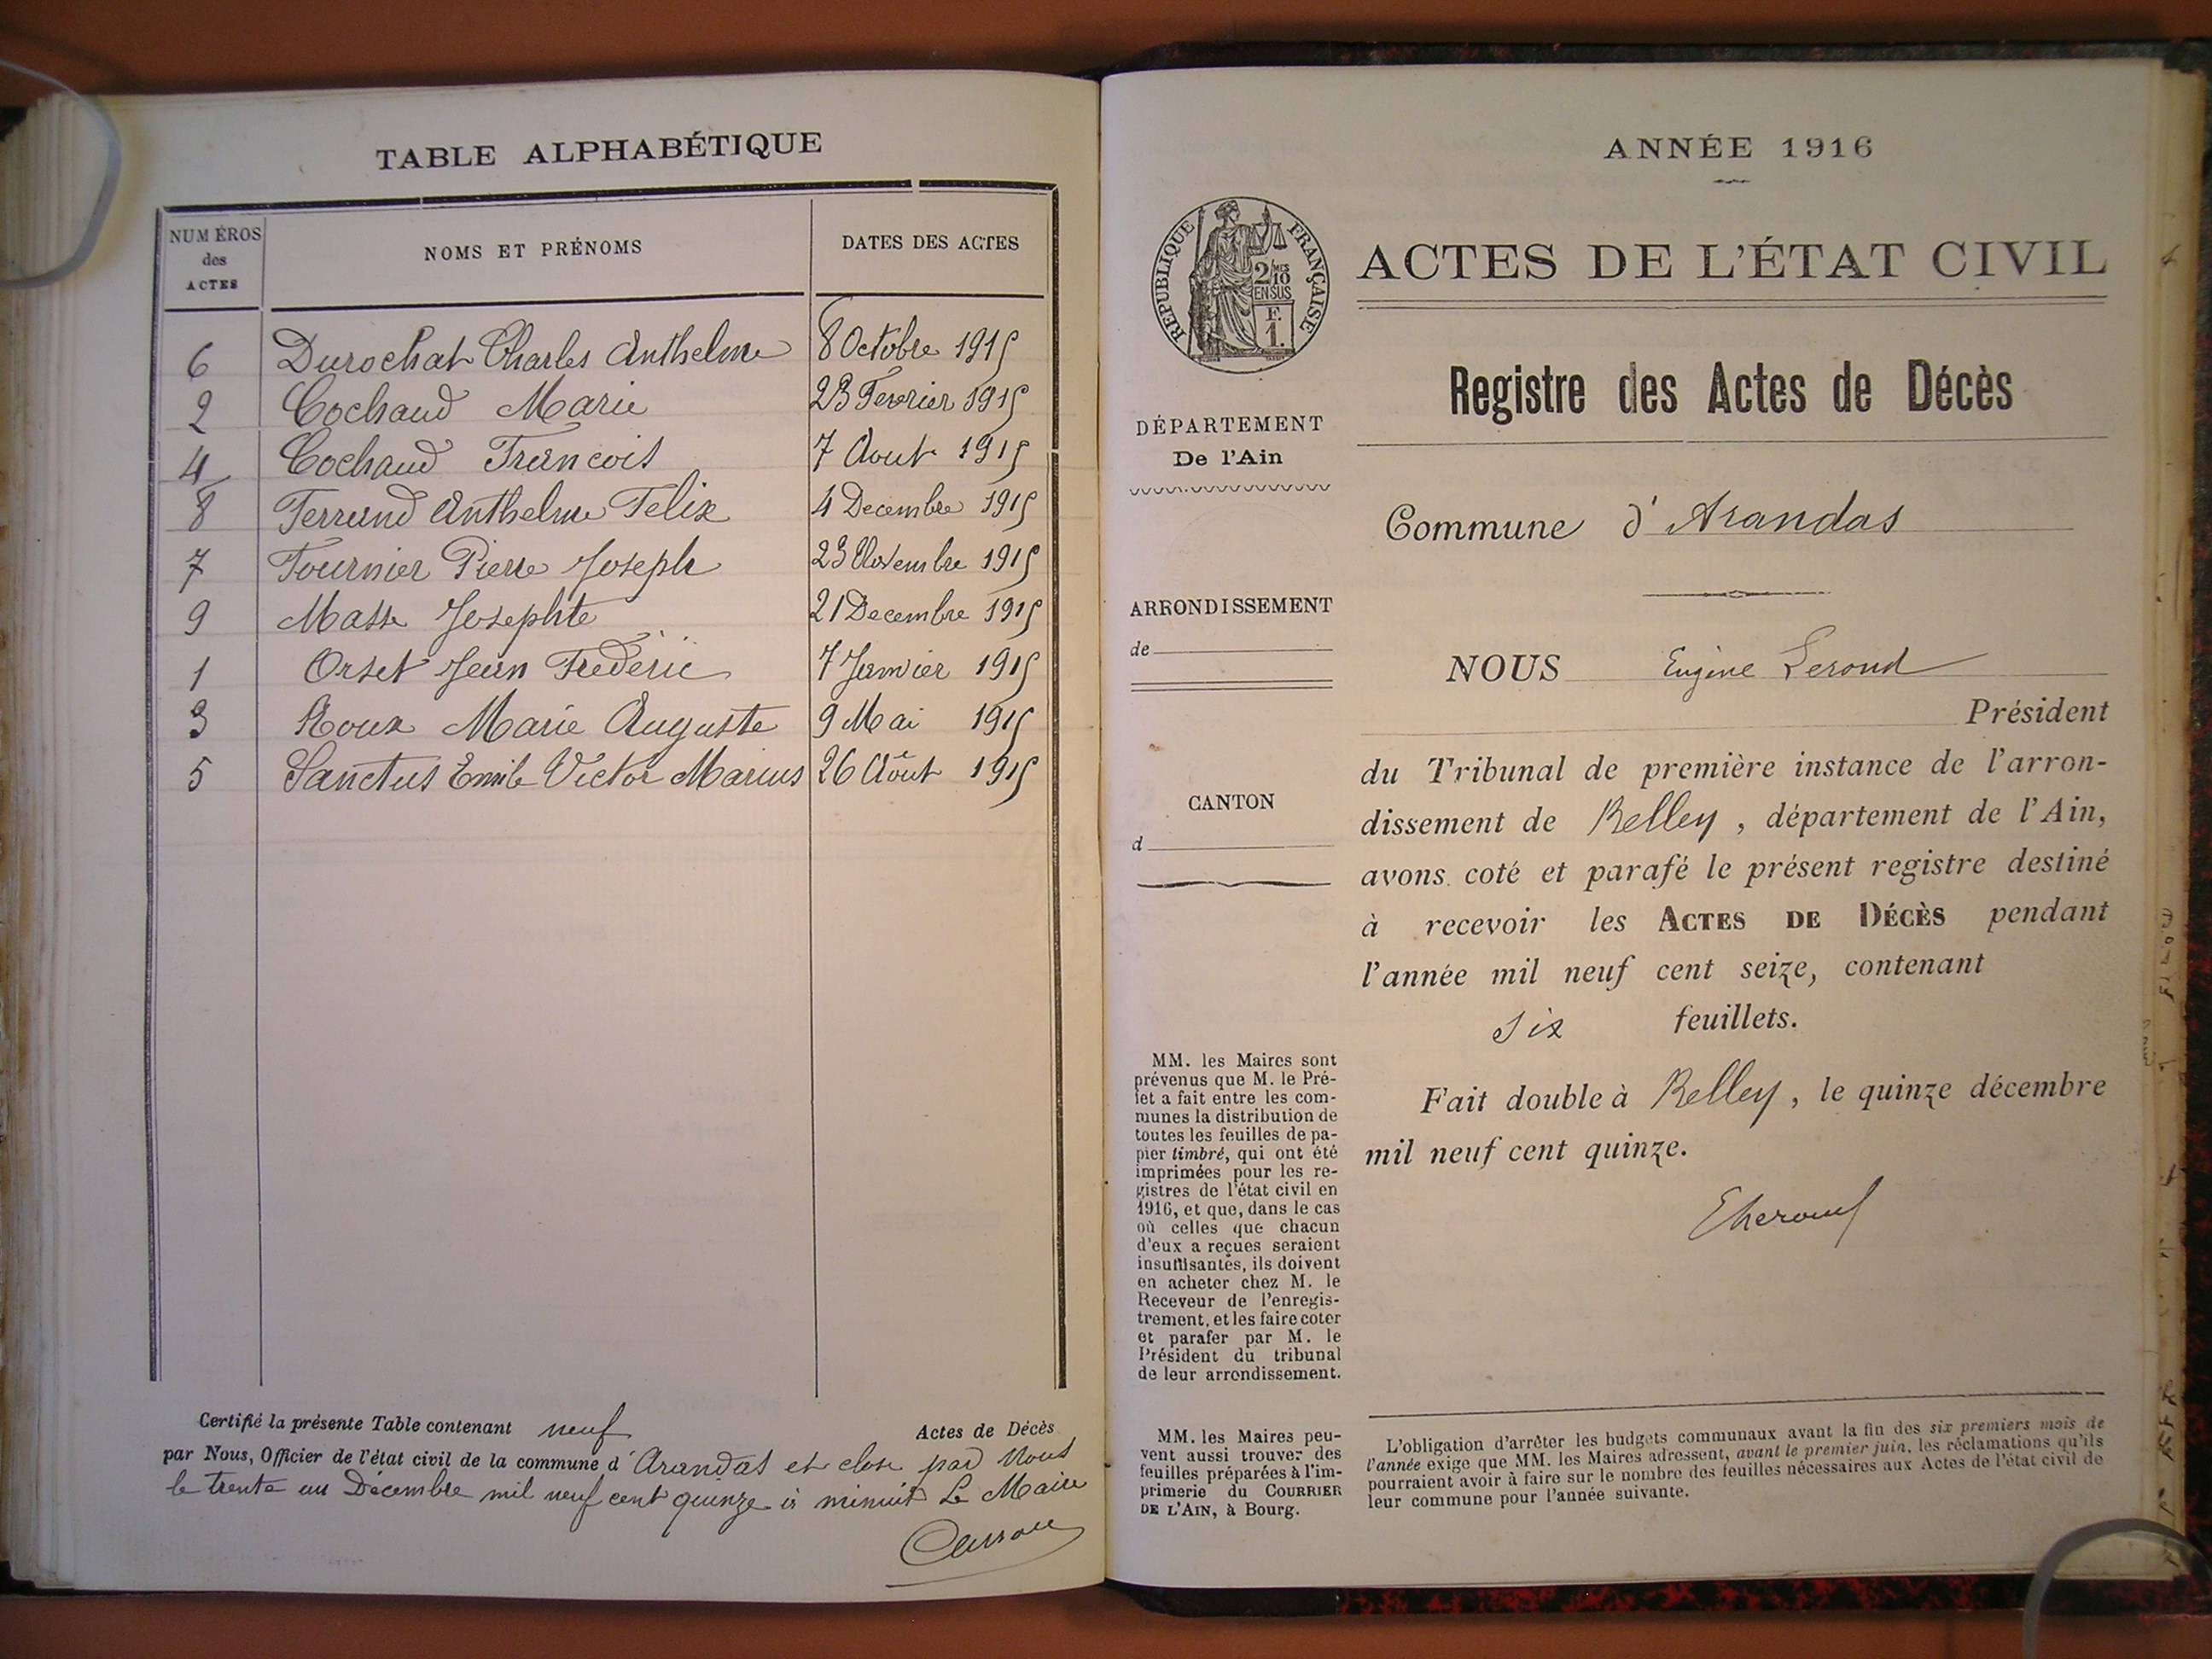 TABLE ALPHABÉTIQUE
NUMÉROS des ACTES
NOMS ET PRÉNOMS
DATES DES ACTES
6 Durochat Charles Anthelme 8 Octobre 1915
2 Cochaud Marie 23 Fevrier 1915
4 Cochaud Francois 7 Aout 1915
8 Ferrand Anthelme Felix 4 Decembre 1915
7 Fournier Pierre Joseph 23 Novembre 1915
9 Masse Josephte 21 Decembre 1915
1 Orset Jean Fréderic 7 Janvier 1915
3 Roux Marie Auguste 9 Mai 1915
5 Sanctus Emile Victor Marius 26 Aôut 1915
Certifié la présente Table contenant neuf Actes de Décès
par Nous, Officier de l'état civil de la commune d'Arandas et close par Nous
le trente un Décembre mil neuf cent quinze à minuit Le Maire
ANNÉE 1916
RÉPUBLIQUE FRANÇAISE
2/10 MES
EN SUS
F.
1.
ACTES DE L'ÉTAT CIVIL
Registre des Actes de Décès
DÉPARTEMENT
De l'Ain
Commune d'Arandas
ARRONDISSEMENT
de
NOUS Eugène Lerond
Président
du Tribunal de première instance de l'arron-
dissement de Belley, département de l'Ain,
avons coté et parafé le présent registre destiné
à recevoir les ACTES DE DÉCÈS pendant
l'année mil neuf cent seize, contenant
six feuillets.
Fait double à Belley, le quinze décembre
mil neuf cent quinze.
CANTON
d
MM. les Maires sont
prévenus que M. le Pré-
fet a fait entre les com-
munes la distribution de
toutes les feuilles de pa-
pier timbré, qui ont été
imprimées pour les re-
gistres de l'état civil en
1916, et que, dans le cas
où celles que chacun
d'eux a reçues seraient
insuffisantes, ils doivent
en acheter chez M. le
Receveur de l'enregis-
trement, et les faire coter
et parafer par M. le
Président du tribunal
de leur arrondissement.
MM. les Maires peu-
vent aussi trouver des
feuilles préparées à l'im-
primerie du COURRIER
DE L'AIN, à Bourg.
L'obligation d'arrêter les budgets communaux avant la fin des six premiers mois de
l'année exige que MM. les Maires adressent, avant le premier juin, les réclamations qu'ils
pourraient avoir à faire sur le nombre des feuilles nécessaires aux Actes de l'état civil de
leur commune pour l'année suivante.